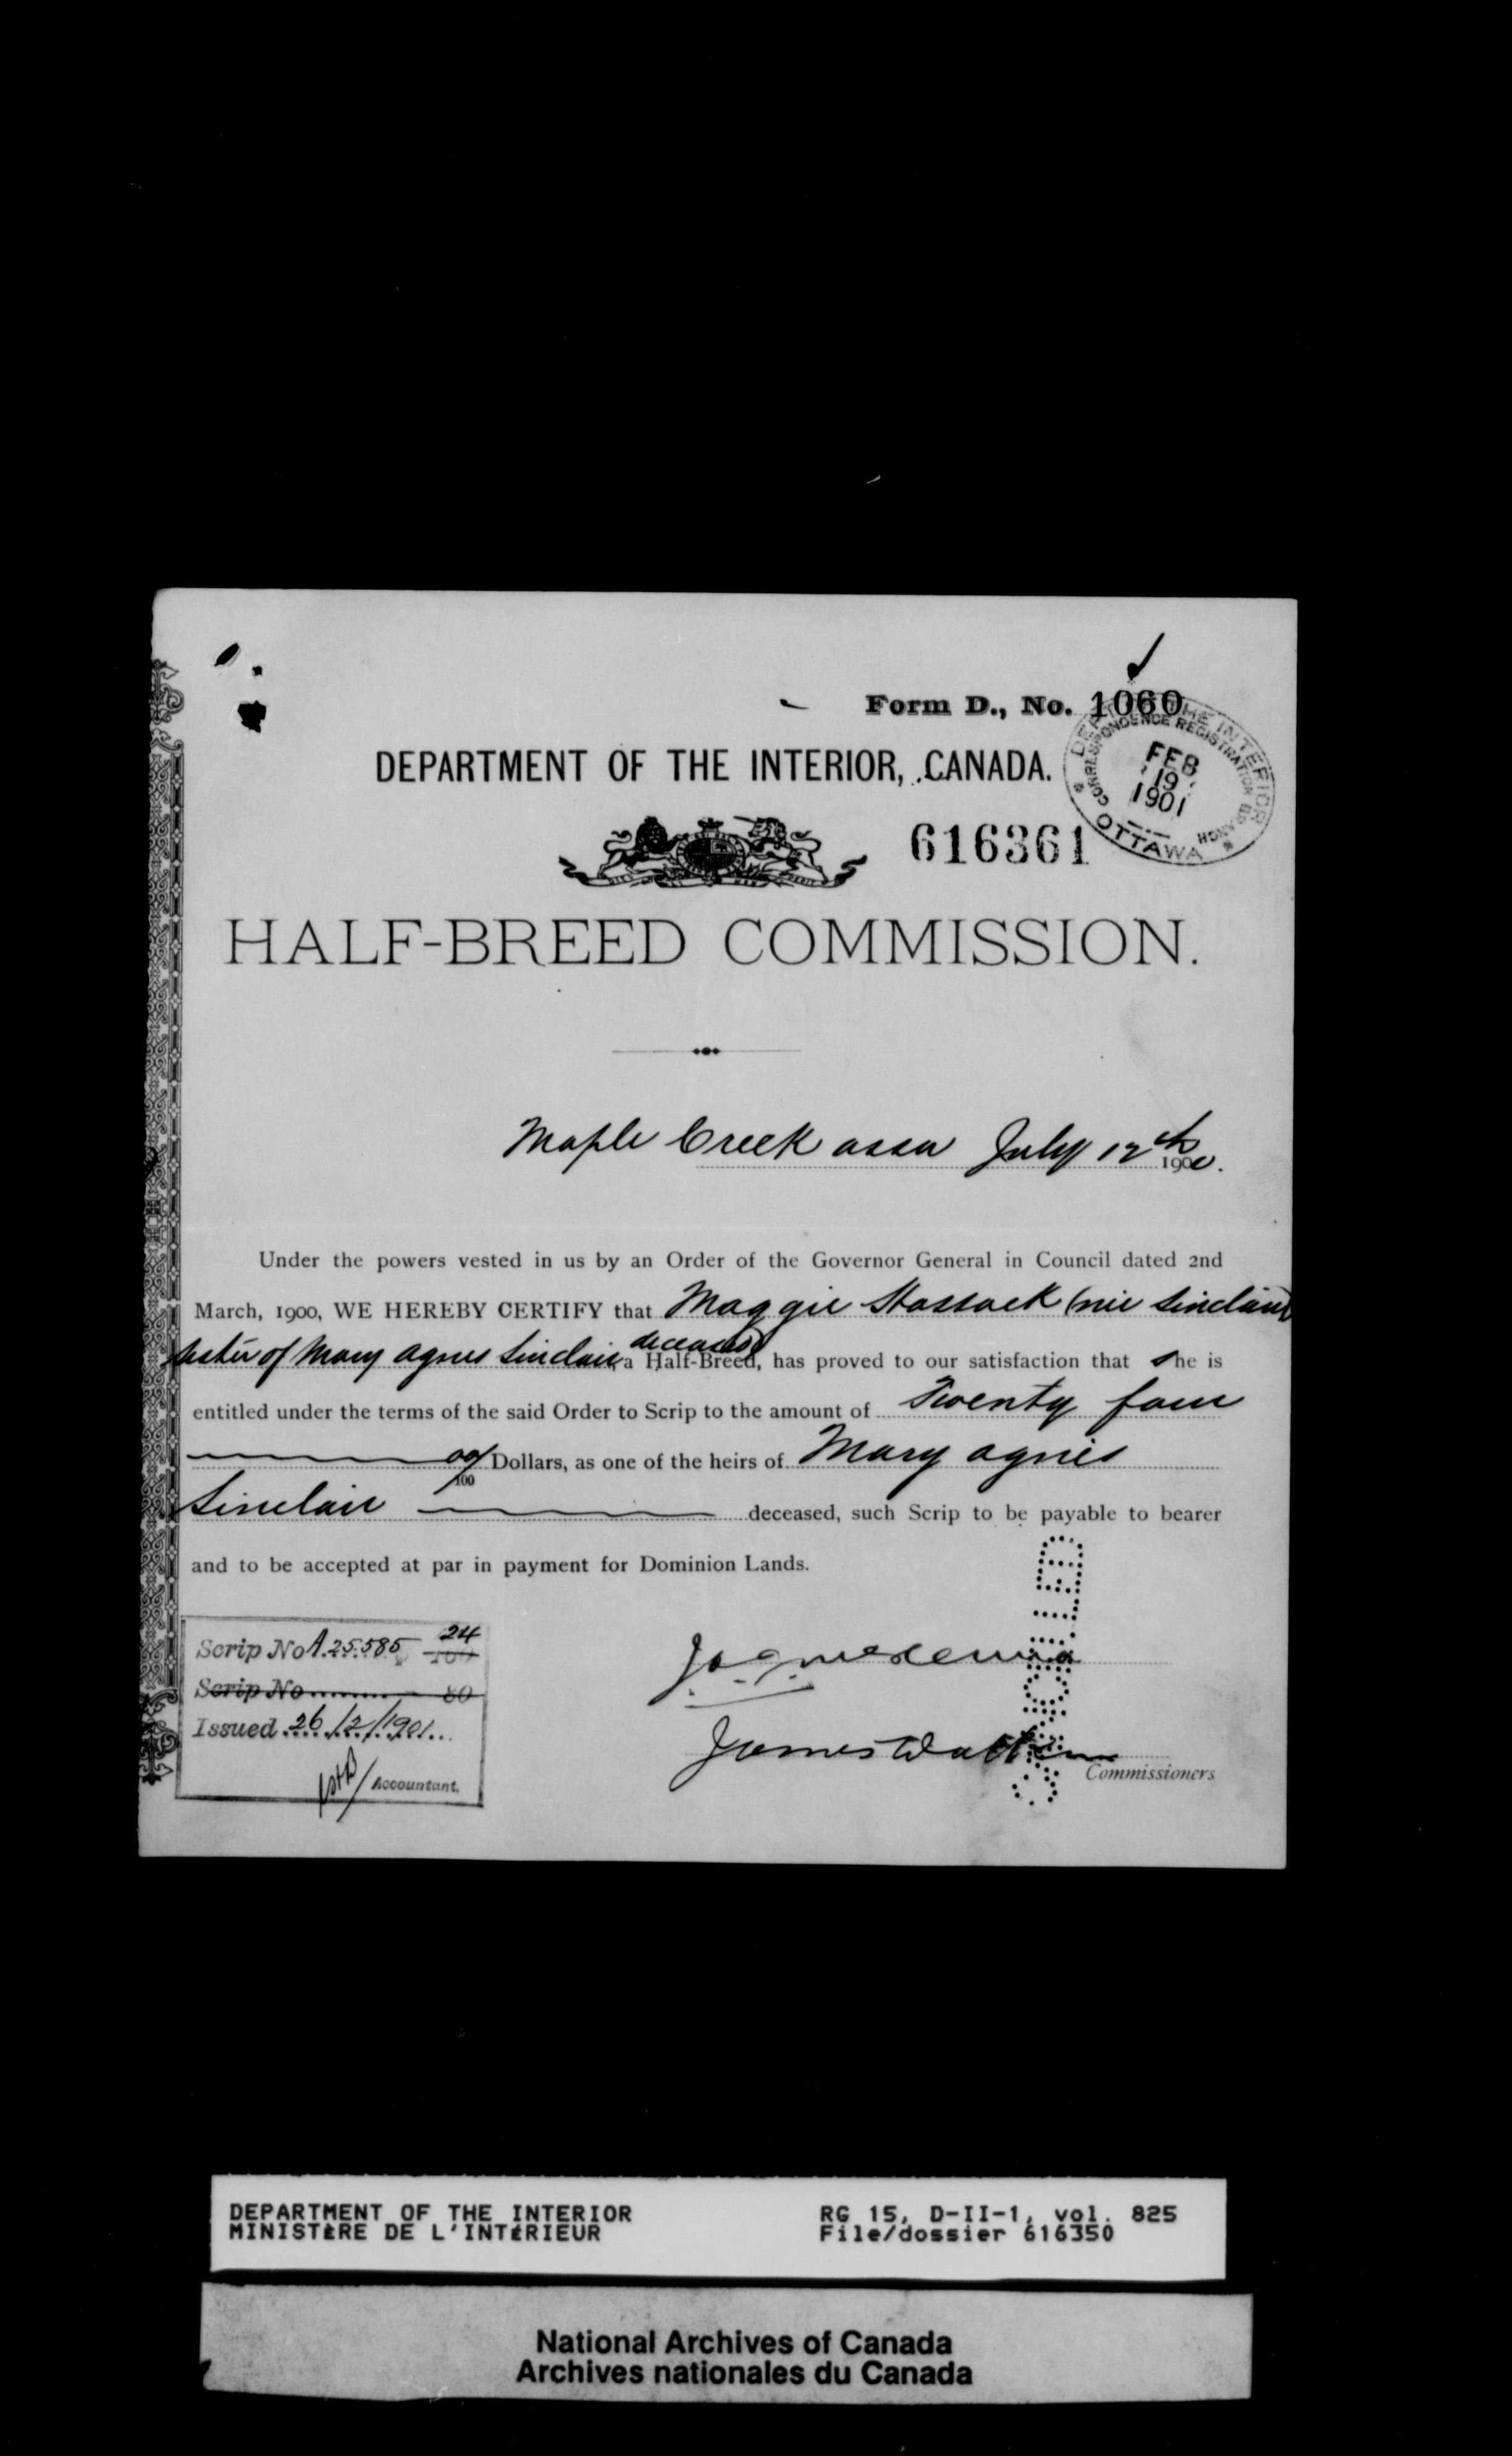 Form D., No. 1060
DEPARTMENT OF THE INTERIOR, CANADA.
DEPT. OF THE INTERIOR
CORRESPONDENCE REGISTRATION BRANCH
FEB
19
1901
OTTAWA
616361
HALF-BREED COMMISSION.
Maple Creek assa July 12th 1900.
Under the powers vested in us by an Order of the Governor General in Council dated 2nd
March, 1900, WE HEREBY CERTIFY that Maggie Hassack (nie Sinclair)
sister of Mary agnes Sinclair, deceased, a Half-Breed, has proved to our satisfaction that she is
entitled under the terms of the said Order to Scrip to the amount of Twenty four
00/100 Dollars, as one of the heirs of Mary agnes
Sinclair deceased, such Scrip to be payable to bearer
and to be accepted at par in payment for Dominion Lands.
Scrip No A.25585 24 100
Scrip No 80
Issued 26/2/1901
Accountant.
CANCELLED
James Walker
Commissioners
DEPARTMENT OF THE INTERIOR
MINISTÈRE DE L'INTÉRIEUR
RG 15, D-II-1, vol. 825
File/dossier 616350
National Archives of Canada
Archives nationales du Canada